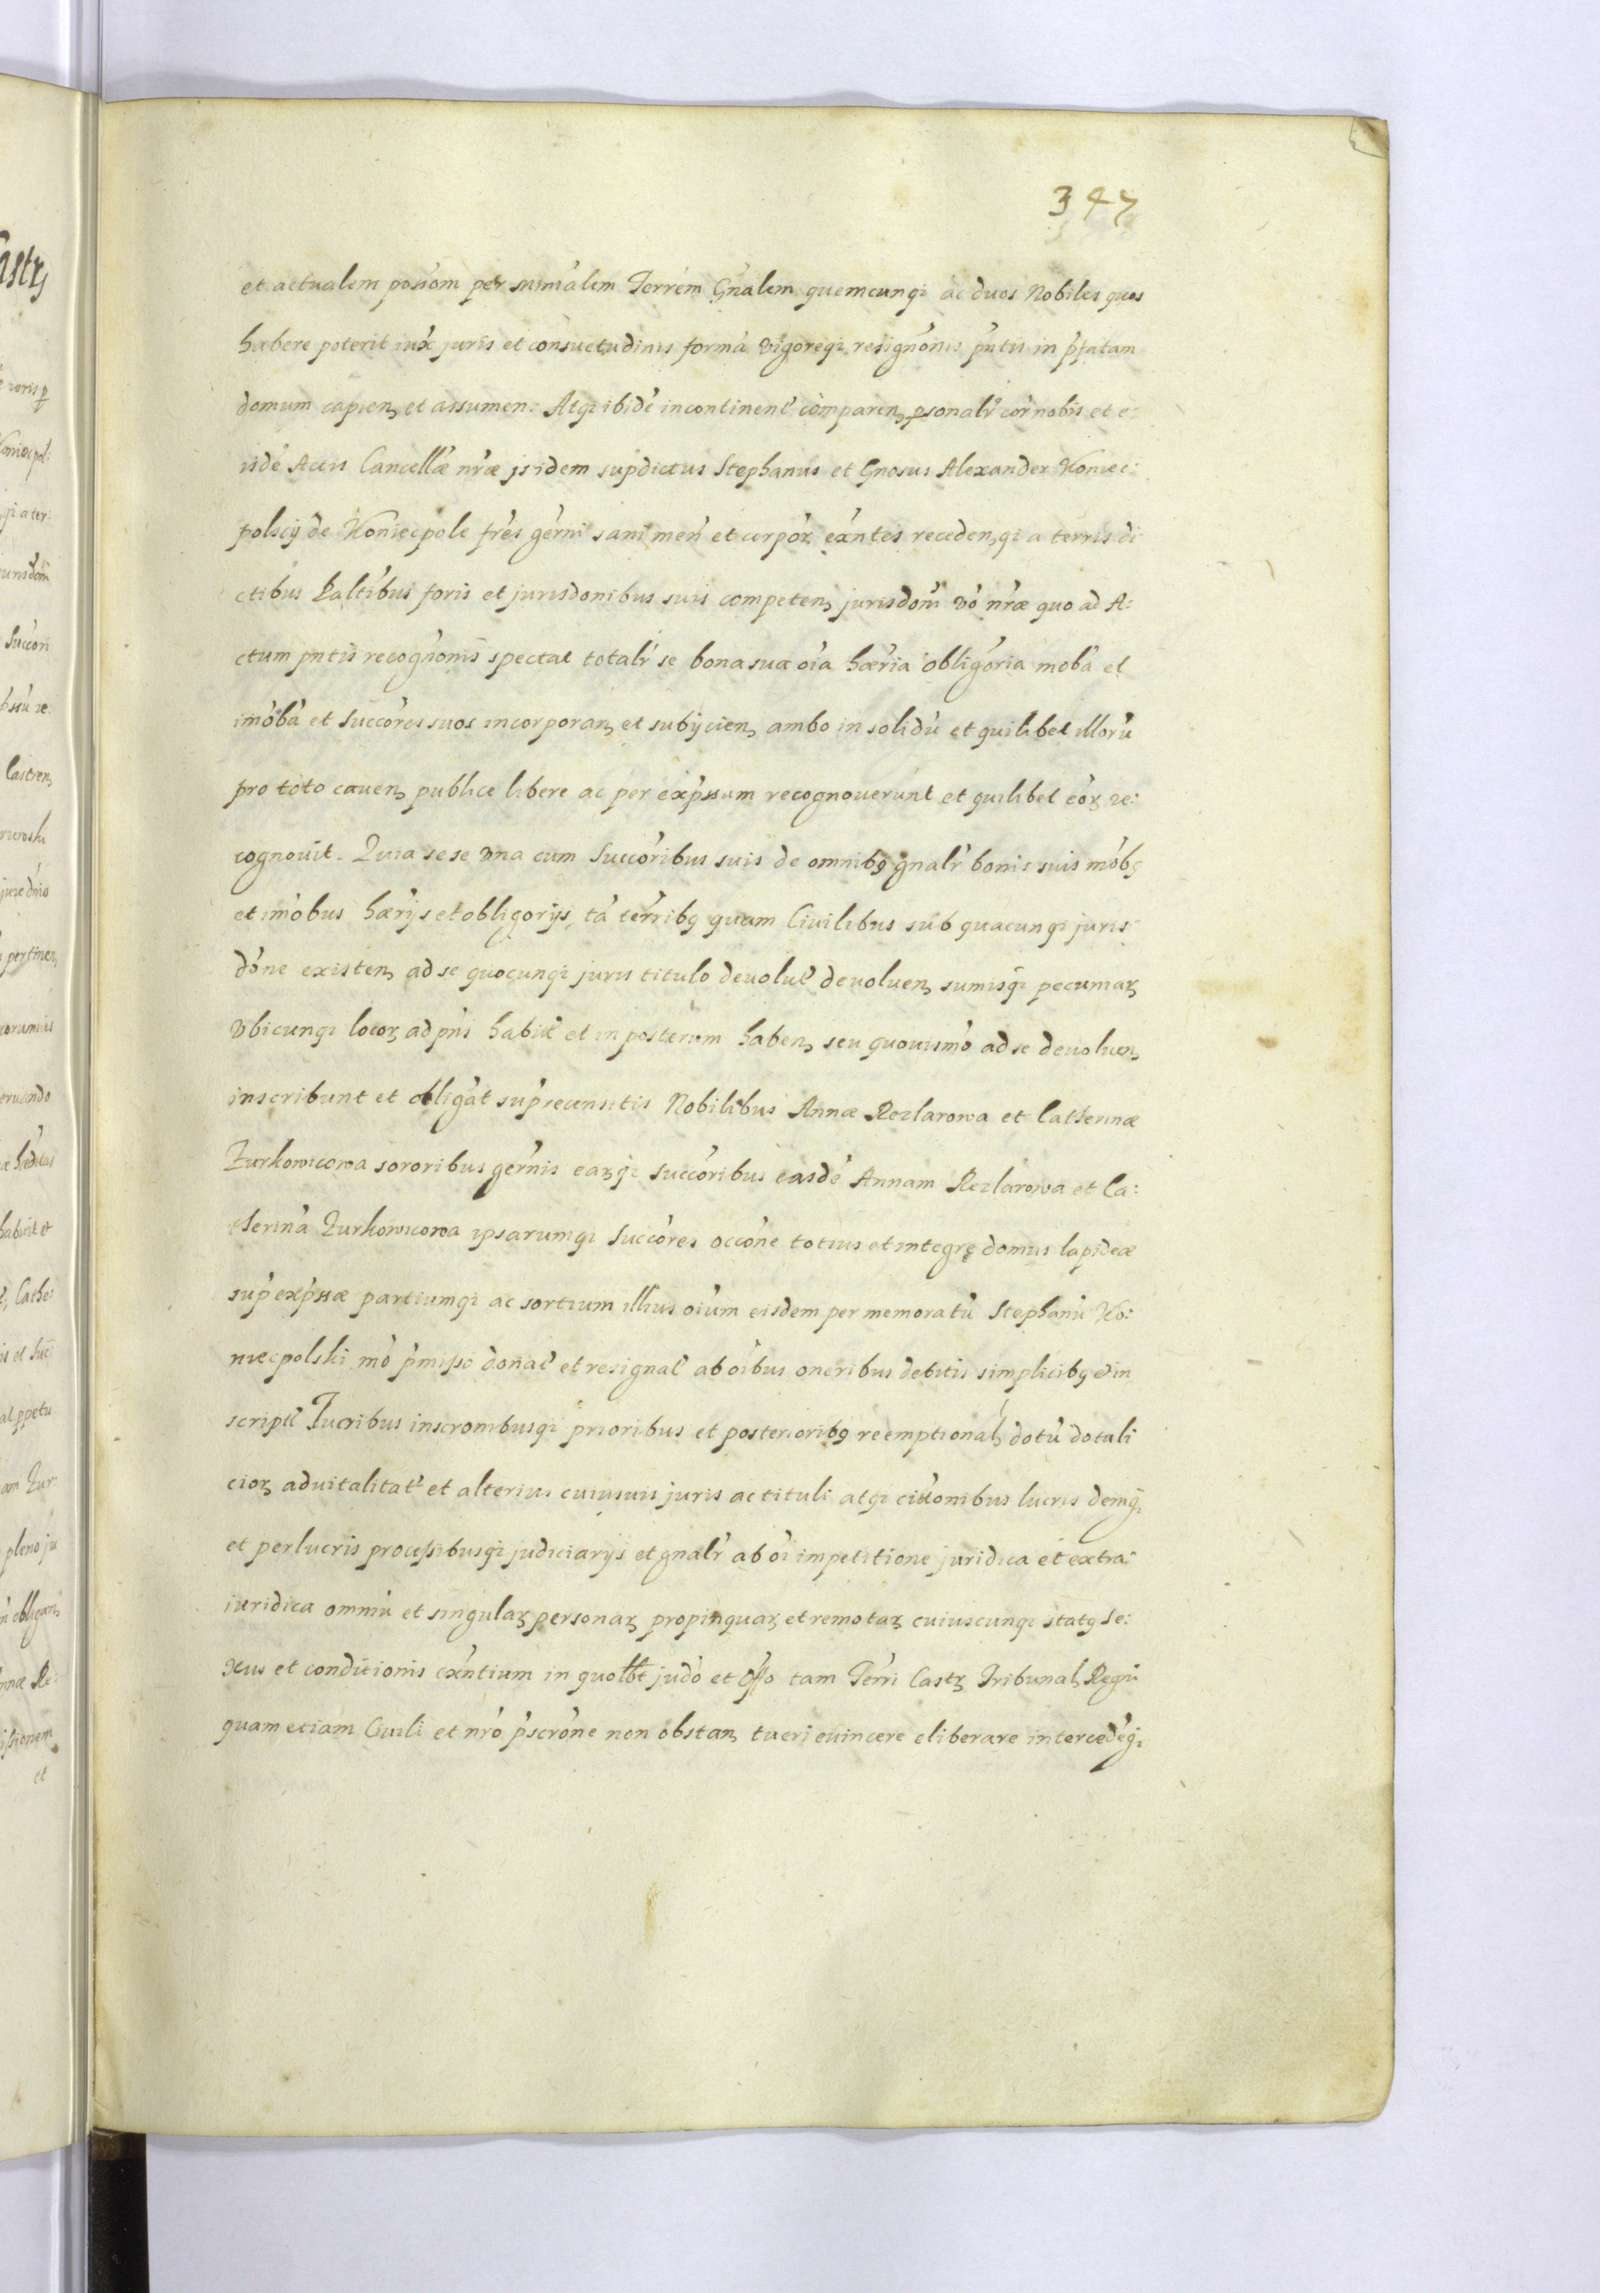 347
et actualem posiom per minialem Terrem Gnalem quemcunqз ac duos Nobiles quos
habere poterit iux juris et consuetudinis forma vigoreqз resignonis pntis in pfatam
domum capien, et assumen: Atqз ibide incontinent comparen, psonalr cor nobis et e:
isde Actis Cancellæ nræ jsidem supdictus Stephanus et Gnosus Alexander Koniec:
polscij de Koniecpole frēs germ sani men et corpor exntes receden,qз a terris di
ctibus Paltibus foris et jurisdonibus suis competen, jurisdom vo nræ quo ad A:
ctum pntis recognonis spectat totalr se bona sua oia hæria obligoria moba et
imoba et Succores suos incorporan, et subijcien, ambo in solidu et quilibet illoru
pro toto caven, publice libere ac per expssum recognouerunt et quilibet eoꝝ re:
cognouit. Quia sese vna cum Succoribus suis de omnibꝫ gnalr bonis suis mobꝫ
et imobus hærijs et obligorijs, ta terribꝫ quam Ciuilibus sub quacunqз juris
done existen, ad se quocunqз juris titulo deuolut deuoluen, sumisqз pecuniaꝝ
vbicunqз locoꝝ ad pns habit et in posterum haben, seu quouismo ad se deuoluen,
inscribunt et obligat suprecensitis Nobilibus Annæ Rezlarowa et Catherinæ
Zurkowicowa sororibus gernis eaꝝqз Succoribus easde Annam Rezlarowa et Ca:
therina Zurkowicowa ipsarumqз Succores occone totius et integrę domus lapideæ
sup expssæ partiumqз ac sortium illius oium eisdem per memoratu Stephanu Ko:
niecpolski mo pmisso donat et resignat ab oibus oneribus debitis simplicibꝫ et in
script Jucribus inscronibusqз prioribus et posterioribꝫ reemptional, dotu dotali
cioꝝ aduitalitat et alterius cuiusuis juris ac tituli atqз citionibus lucris demqз
et perlucris processibusqз judiciarijs et gnalr ab oi impetitione juridica et extra
iuridica omniu et singulaꝝ personaꝝ propinquaꝝ et remotaꝝ cuiuscunqз statꝫ se:
xus et conditionis exntium in quolbt judo et offo tam Terri Castꝝ Tribunal, Regni
quam etiam Ciuili et nro pscrone non obstan, tueri euincere eliberare intercedeqз